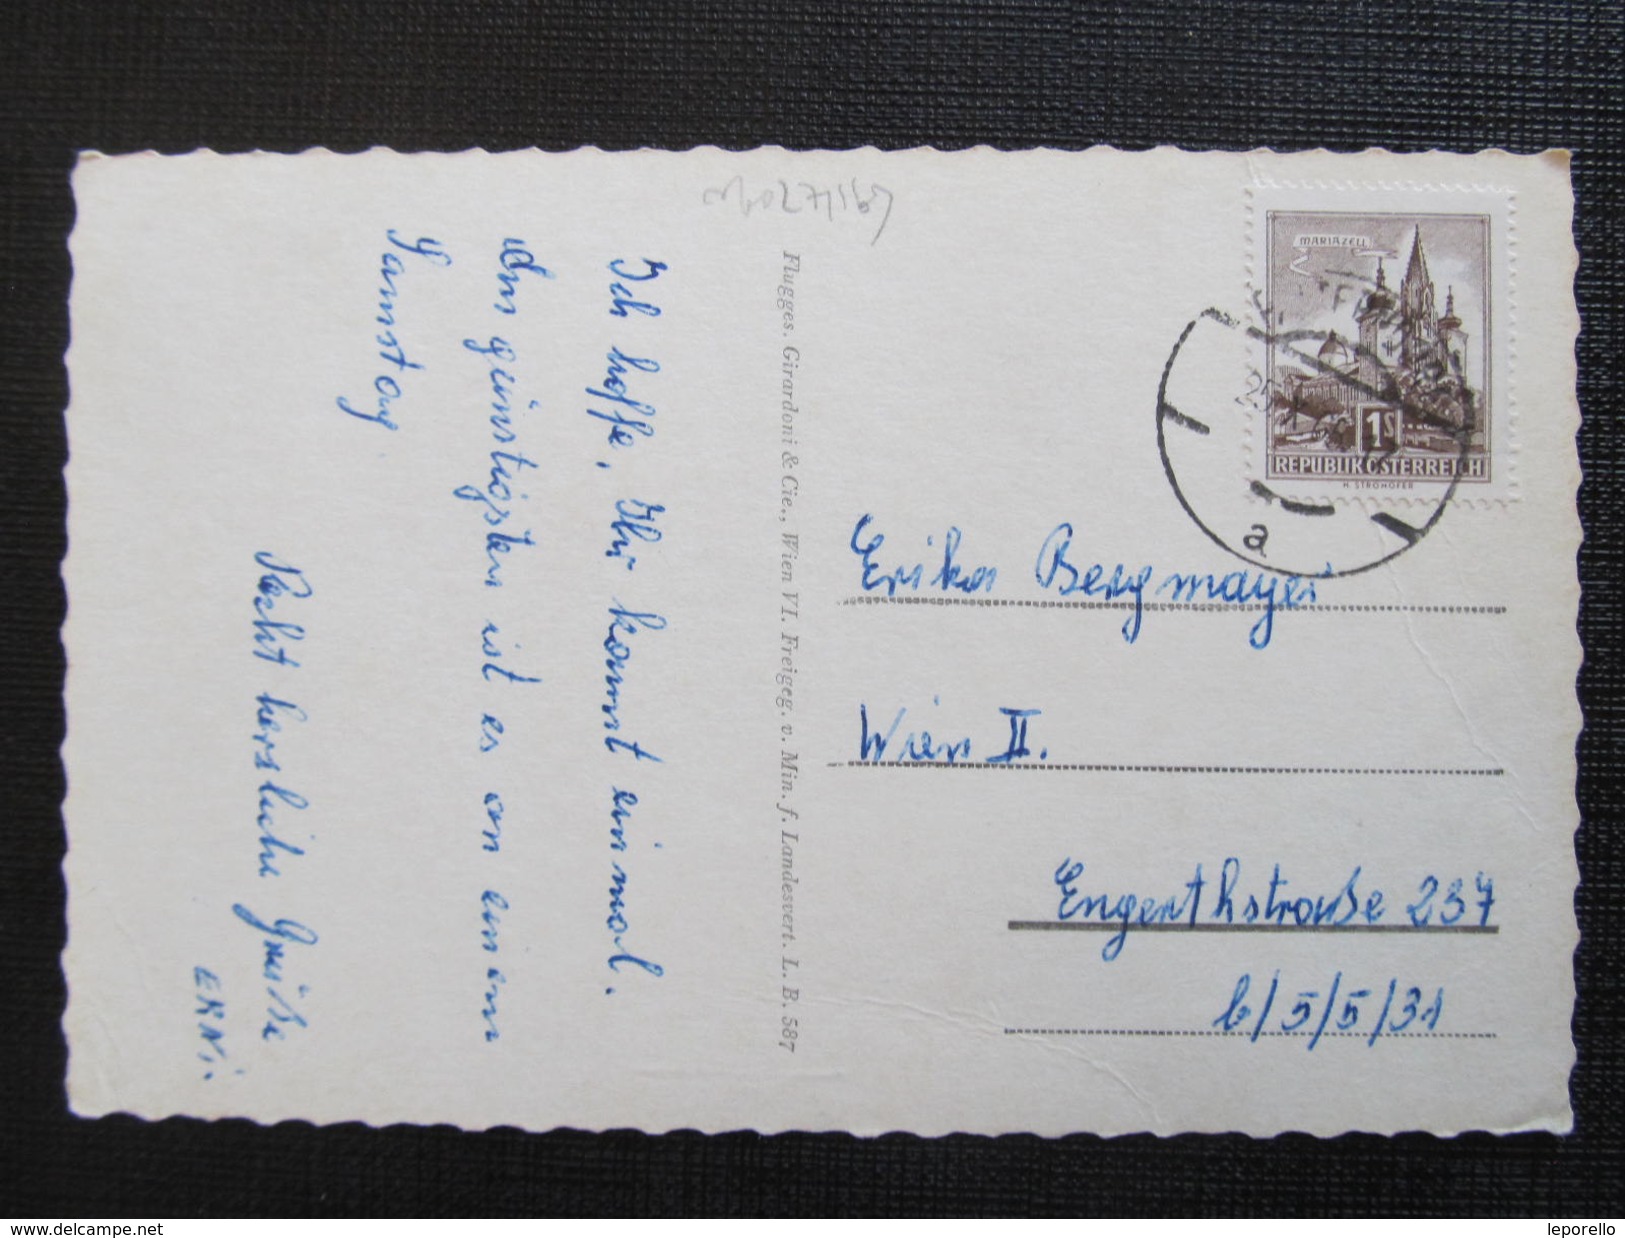 Ich hoffe, Ihr kommt einmal.
Am günstigsten ist es an einem
Samstag
Recht herzliche Grüße
ERNI.
Flugges. Girardoni & Cie., Wien VI. Freigeg. v. Min. f. Landesvert. L. B. 587
MARIAZELL
1S
REPUBLIK ÖSTERREICH
H. STROHOFER
a
Erika Bergmayer
Wien II.
Engerthstraße 237
b/5/5/31
www.delcampe.net
leporello